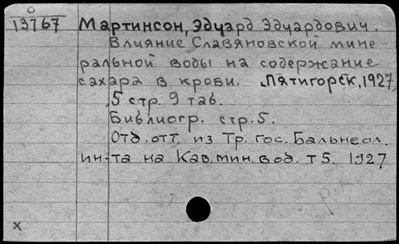 0
13767
Мартинсон, Эдуард Эдуардович.
Влияние Славяновской мине
ральной воды на содержание
сахара в крови. Пятигорск, 1927,
5 стр. 9 таб.
Библиогр. стр. 5.
Отд. отт. из Тр. гос. Бальнеол.
ин-та на Кав. мин. вод. т 5. 1927
х